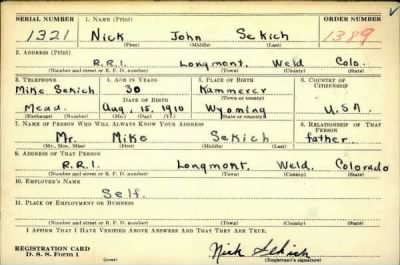 SERIAL NUMBER 1. NAME (Print) ORDER NUMBER
1321 Nick John Sekich 1389
(First) (Middle) (Last)
2. ADDRESS (Print)
R.R.1. Longmont, Weld Colo.
(Number and street or R. F. D. number) (Town) (County) (State)
3. TELEPHONE 4. AGE IN YEARS 5. PLACE OF BIRTH 6. COUNTRY OF CITIZENSHIP
Mike Sekich 30 Kammerer
DATE OF BIRTH (Town or county)
Mead. Aug. 15, 1910 Wyoming U.S.A.
(Exchange) (Number) (Mo.) (Day) (Yr.) (State or country)
7. NAME OF PERSON WHO WILL ALWAYS KNOW YOUR ADDRESS 8. RELATIONSHIP OF THAT PERSON
Mr. Mike Sekich father.
(Mr., Mrs., Miss) (First) (Middle) (Last)
9. ADDRESS OF THAT PERSON
R.R.1. Longmont, Weld. Colorado
(Number and street or R. F. D. number) (Town) (County) (State)
10. EMPLOYER'S NAME
Self.
11. PLACE OF EMPLOYMENT OR BUSINESS
(Number and street or R. F. D. number) (Town) (County) (State)
I AFFIRM THAT I HAVE VERIFIED ABOVE ANSWERS AND THAT THEY ARE TRUE.
REGISTRATION CARD
D. S. S. Form 1 (over) Nick Sekich
(Registrant's signature)